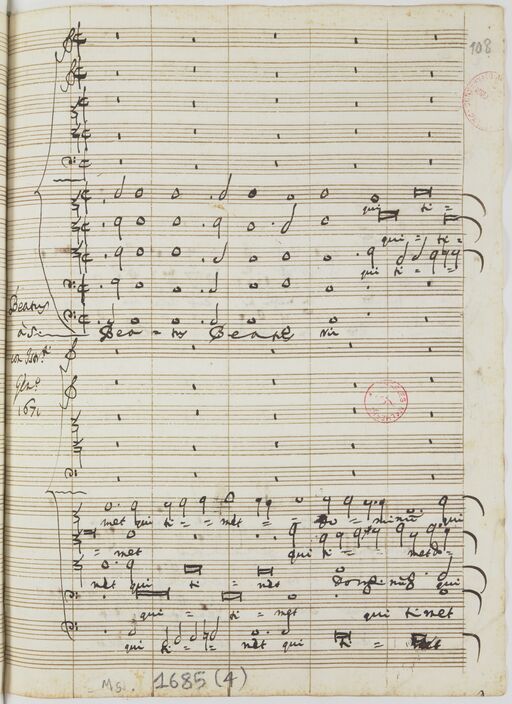 108
qui ti =
qui = ti =
qui ti = =
Beatus
Bea = tus Beatus Vir
1671
met qui ti = = met = = Do = minũ qui
= met qui ti = = met do =
met qui ti = met Dominus qui
qui = ti = met qui timet
qui ti = = met qui ti = met
Ms. 1685 (4)